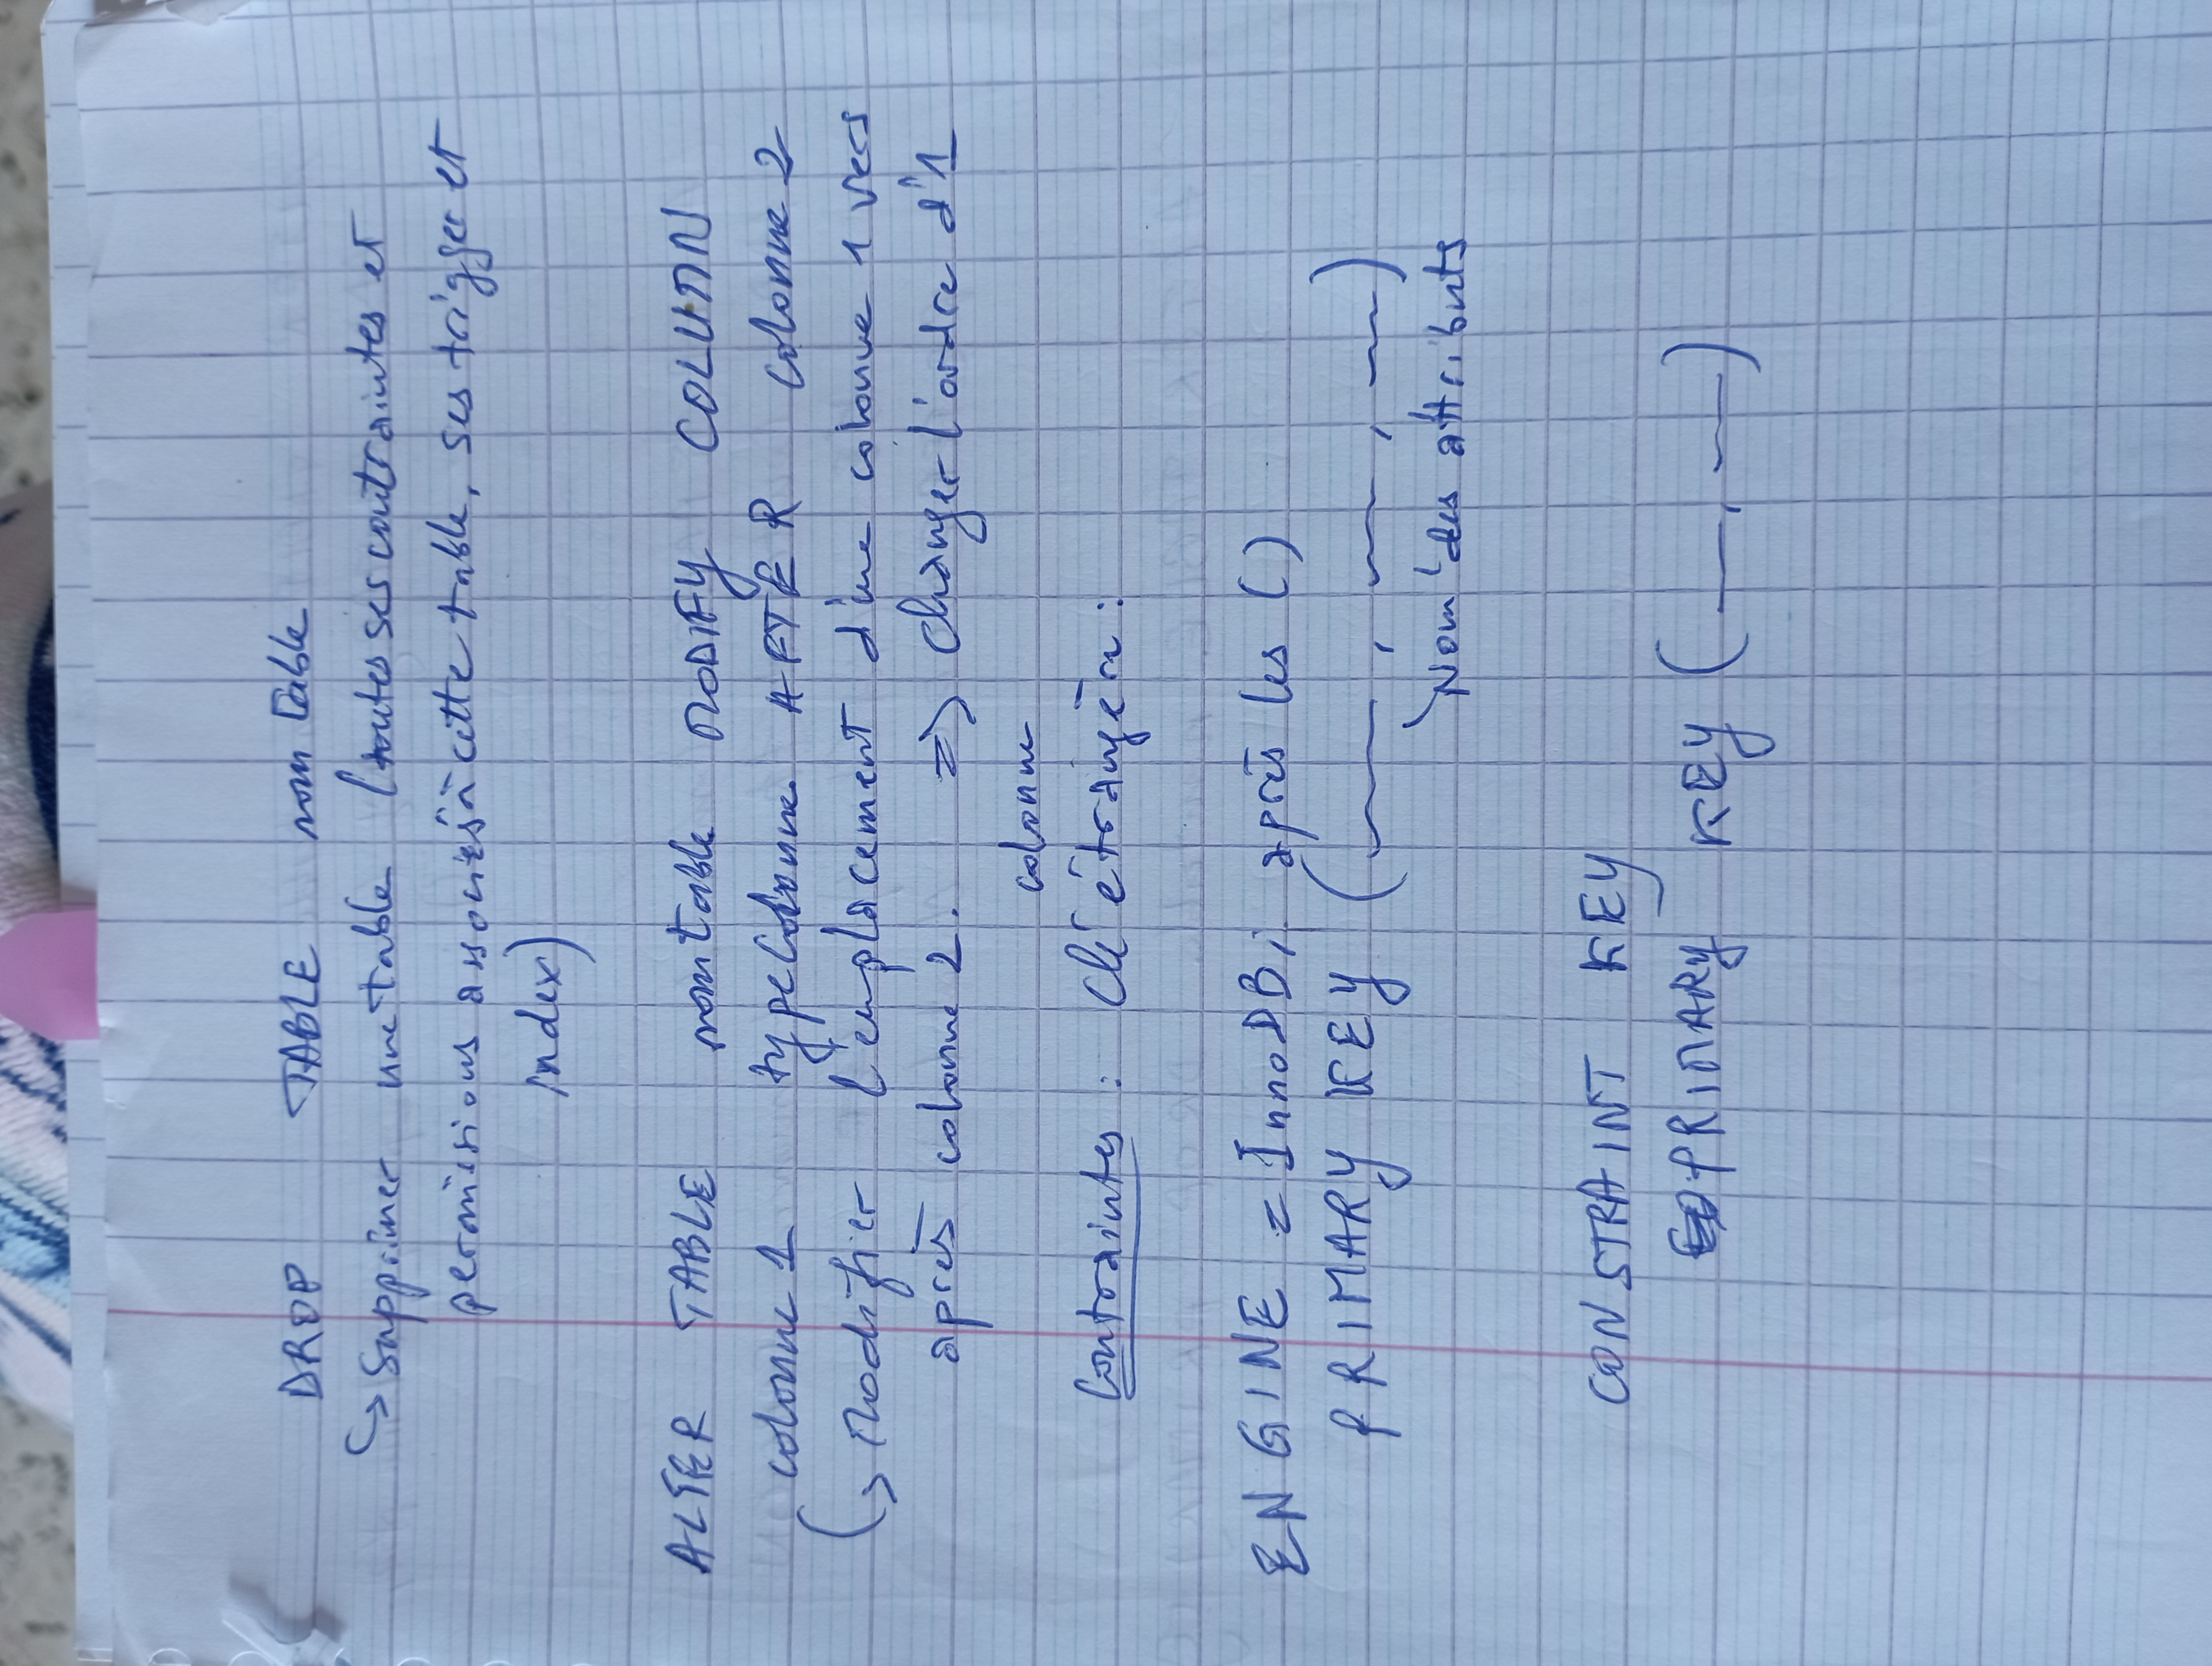 DROP TABLE nomTable
↳ Supprimer une table (toutes ses contraintes et
permissions associés à cette table, ses trigger et
index)
ALTER TABLE nomtable MODIFY COLUMN
colonne 1 typeColonne AFTER colonne 2
↳ Modifier l'emplacement d'une colonne 1 vers
après colonne 2. => Changer l'ordre d'1
colonne
Contraintes : Clé étrangère :
ENGINE = InnoDB; après les ()
PRIMARY KEY ( , , )
Nom des attributs
CONSTRAINT KEY
PRIMARY KEY (__, __)